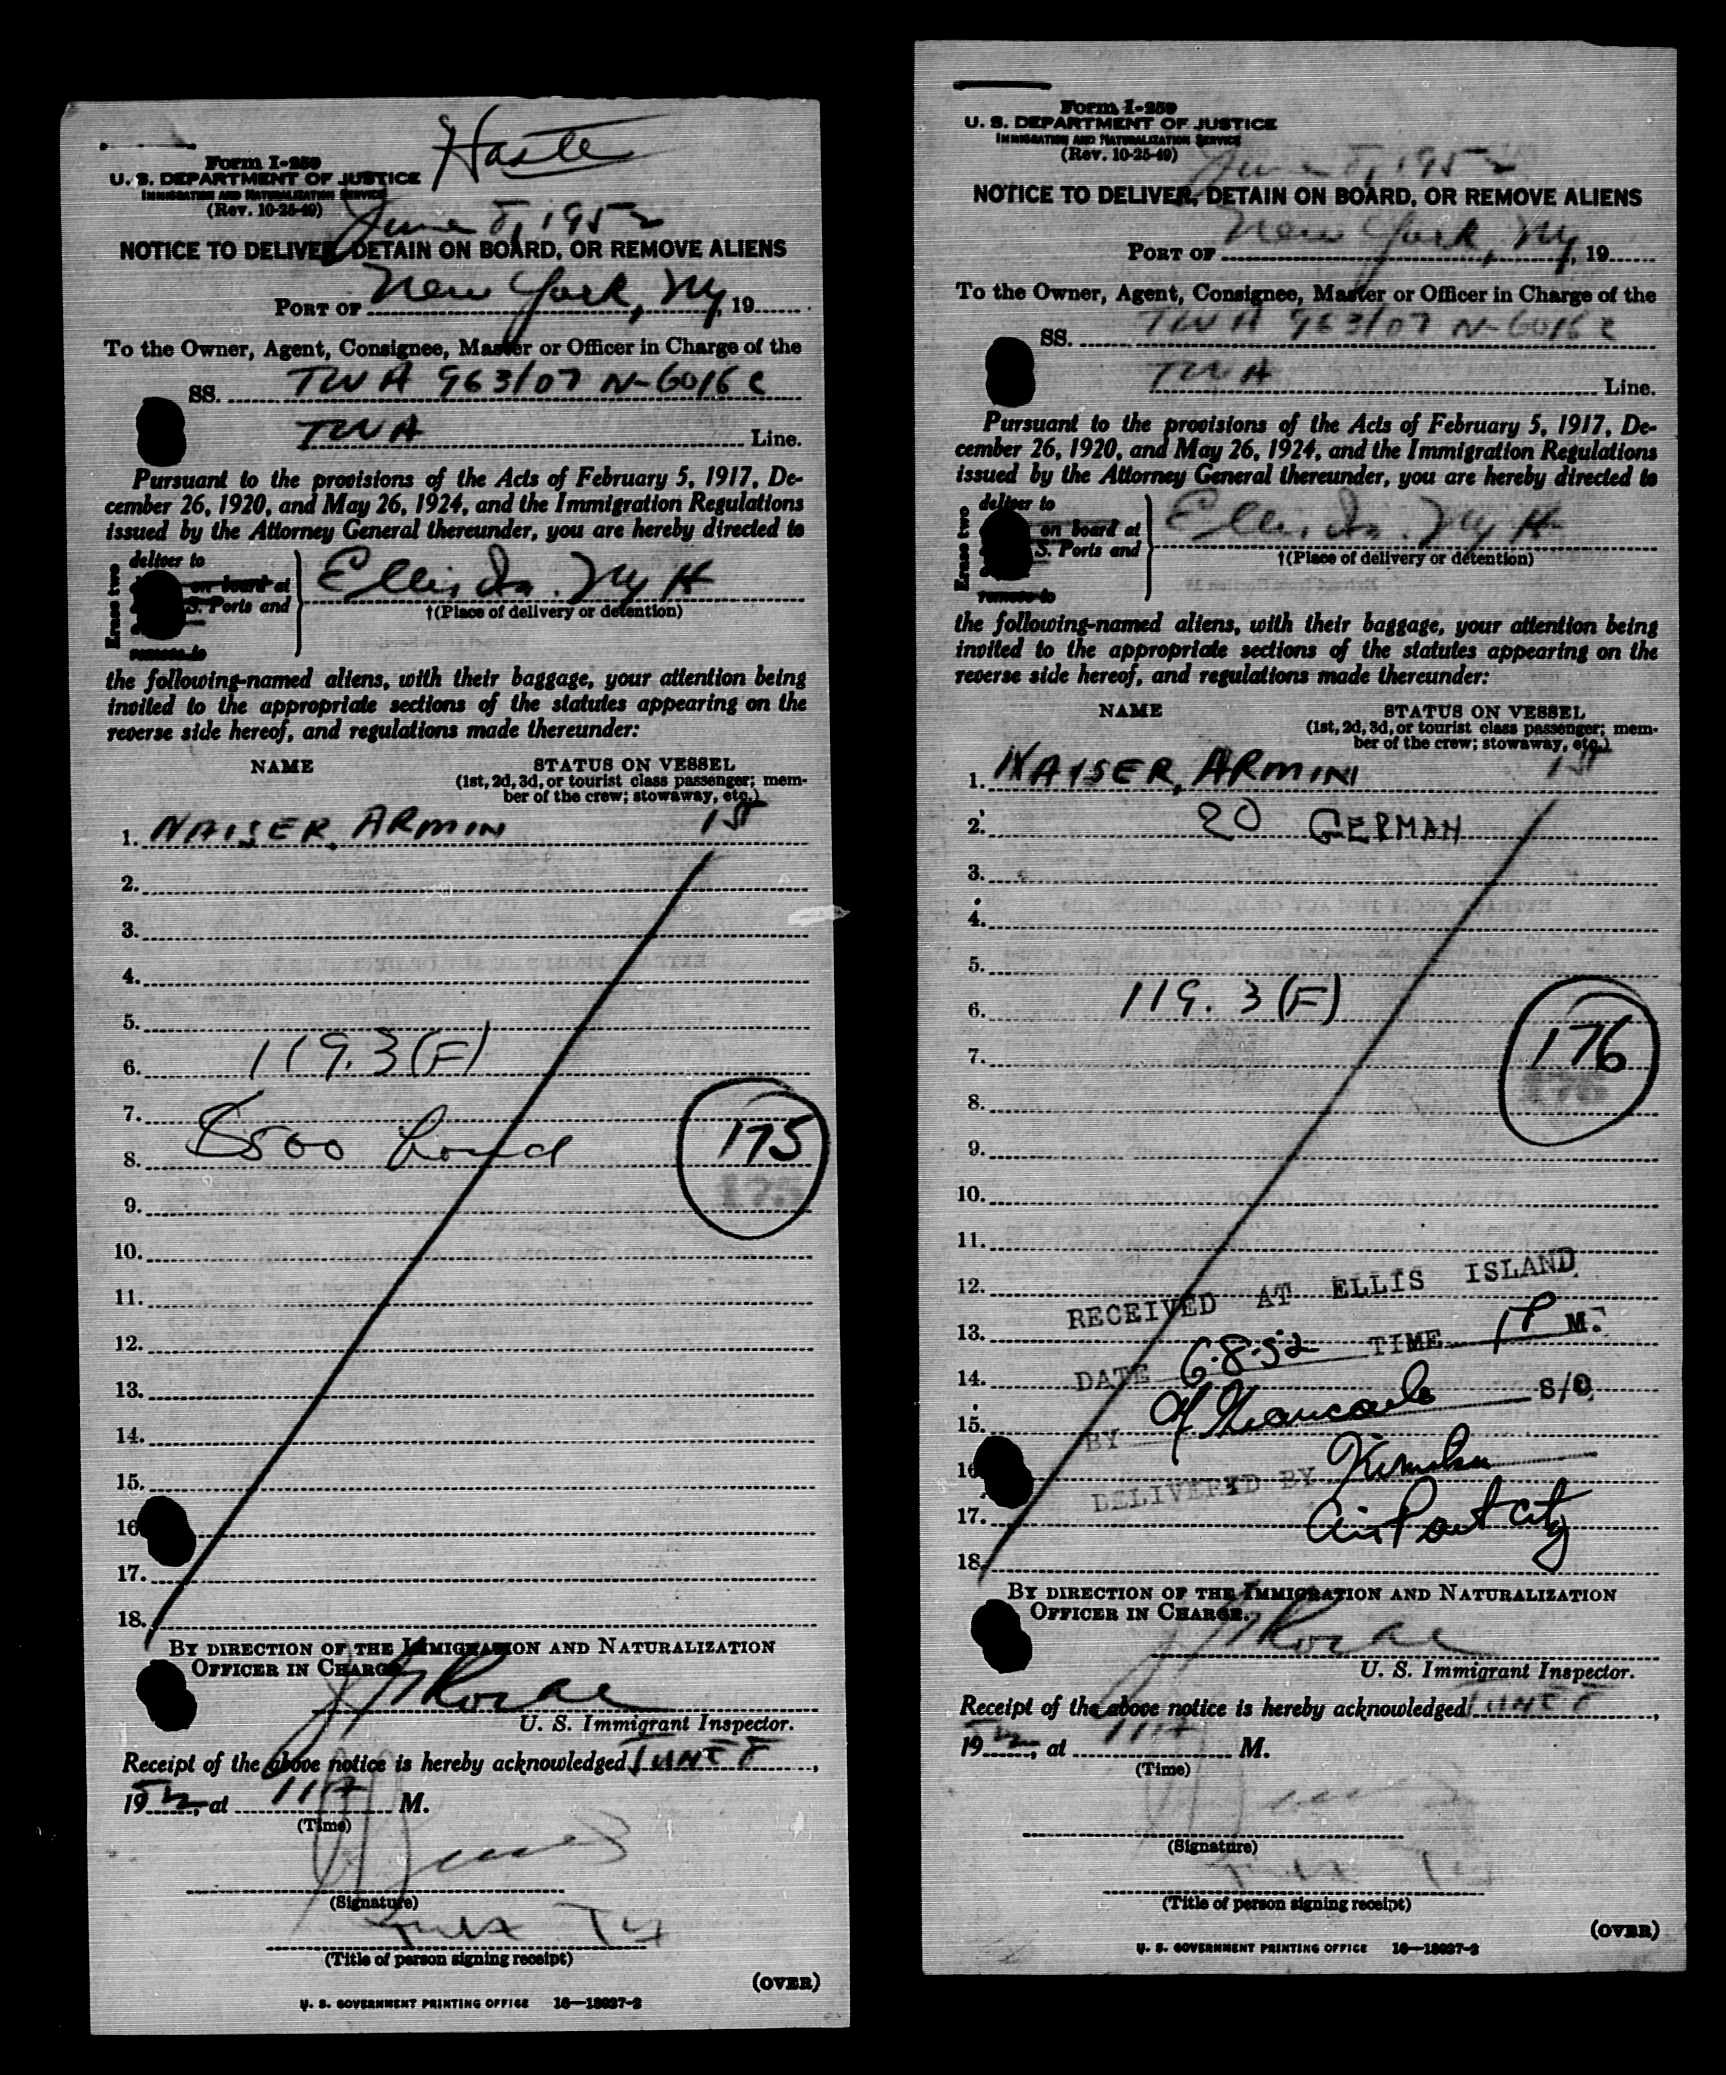 Haste
Form I-259
U. S. DEPARTMENT OF JUSTICE
IMMIGRATION AND NATURALIZATION SERVICE
(Rev. 10-25-49)
June 8, 1952
NOTICE TO DELIVER, DETAIN ON BOARD, OR REMOVE ALIENS
PORT OF New York, Ny, 19
To the Owner, Agent, Consignee, Master or Officer in Charge of the
SS. TWA 963/07 N-6016C
TWA Line.
Pursuant to the provisions of the Acts of February 5, 1917, De-
cember 26, 1920, and May 26, 1924, and the Immigration Regulations
issued by the Attorney General thereunder, you are hereby directed to
Erase two
deliver to
on board at
S. Ports and
remove to
Ellis Is. Ny H
†(Place of delivery or detention)
the following-named aliens, with their baggage, your attention being
invited to the appropriate sections of the statutes appearing on the
reverse side hereof, and regulations made thereunder:
NAME STATUS ON VESSEL
(1st, 2d, 3d, or tourist class passenger; mem-
ber of the crew; stowaway, etc.)
1. KAISER, ARMIN 1ST
2.
3.
4.
5.
6. 119.3(F)
7.
8. $500 bond
175
175
9.
10.
11.
12.
13.
14.
15.
16
17.
18.
BY DIRECTION OF THE IMMIGRATION AND NATURALIZATION
OFFICER IN CHARGE.
U. S. Immigrant Inspector.
Receipt of the above notice is hereby acknowledged JUNE 8,
1952, at 11A M.
(Time)
(Signature)
(Title of person signing receipt)
(OVER)
U. S. GOVERNMENT PRINTING OFFICE 16—13027-2
Form I-259
U. S. DEPARTMENT OF JUSTICE
IMMIGRATION AND NATURALIZATION SERVICE
(Rev. 10-25-49)
June 8, 1952
NOTICE TO DELIVER, DETAIN ON BOARD, OR REMOVE ALIENS
PORT OF New York, Ny, 19
To the Owner, Agent, Consignee, Master or Officer in Charge of the
SS. TWA 963/07 N-6016C
TWA Line.
Pursuant to the provisions of the Acts of February 5, 1917, De-
cember 26, 1920, and May 26, 1924, and the Immigration Regulations
issued by the Attorney General thereunder, you are hereby directed to
Erase two
deliver to
on board at
S. Ports and
remove to
Ellis Is. Ny H
†(Place of delivery or detention)
the following-named aliens, with their baggage, your attention being
invited to the appropriate sections of the statutes appearing on the
reverse side hereof, and regulations made thereunder:
NAME STATUS ON VESSEL
(1st, 2d, 3d, or tourist class passenger; mem-
ber of the crew; stowaway, etc.)
1. KAISER, ARMIN 1ST
2. 20 GERMAN
3.
4.
5.
6. 119.3(F)
176
176
7.
8.
9.
10.
11.
12.
RECEIVED AT ELLIS ISLAND
13.
DATE 6-8-52 TIME 1 P M.
14.
BY S/O
15.
16
DELIVERED BY
17. Airport city
18.
BY DIRECTION OF THE IMMIGRATION AND NATURALIZATION
OFFICER IN CHARGE.
U. S. Immigrant Inspector.
Receipt of the above notice is hereby acknowledged JUNE 8,
1952, at 11A M.
(Time)
(Signature)
(Title of person signing receipt)
(OVER)
U. S. GOVERNMENT PRINTING OFFICE 16—13027-2